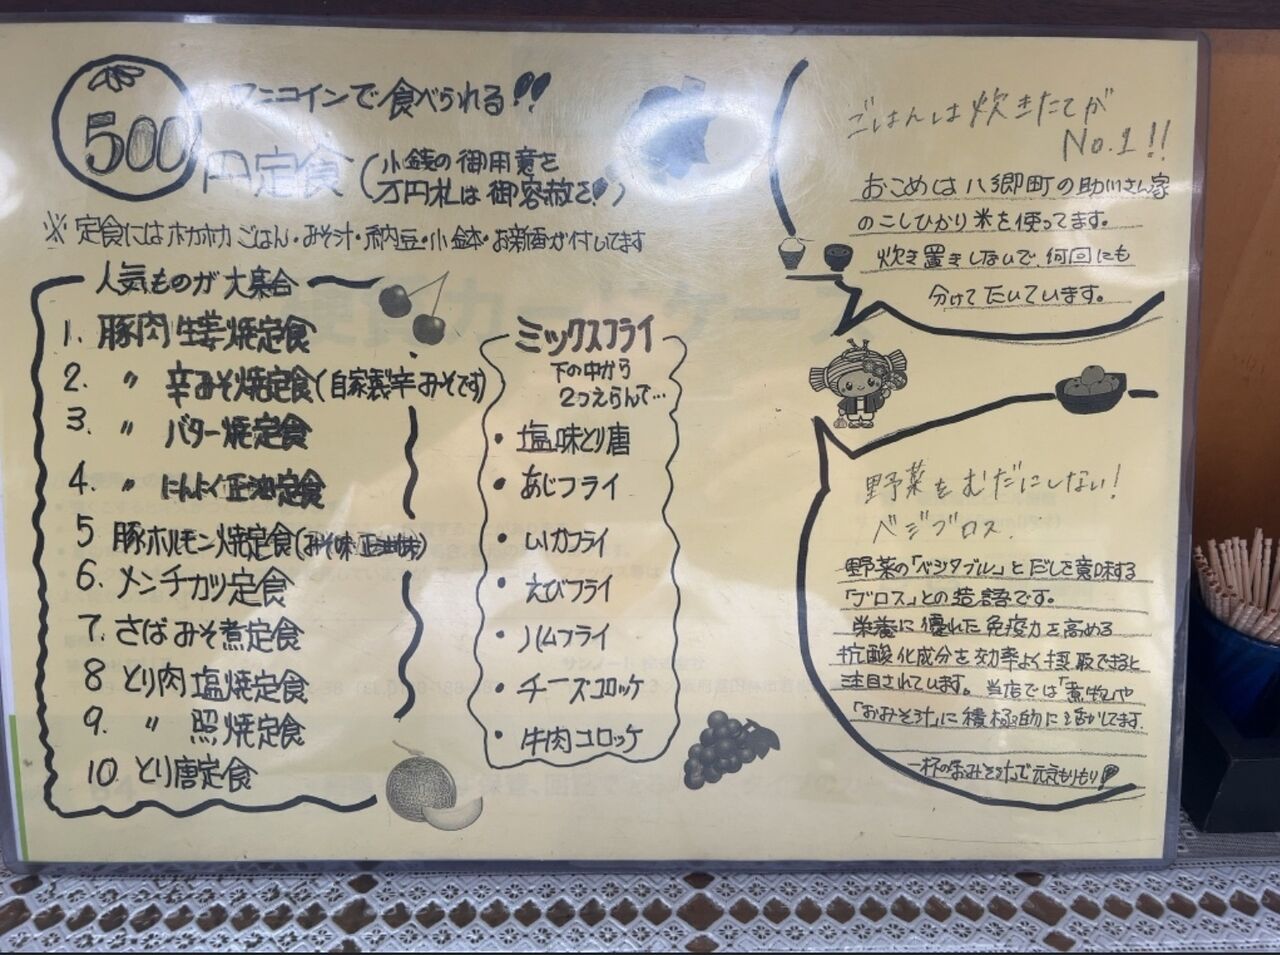 500
ワンコインで食べられる!!
円定食(小銭の御用意を
万円札は御容赦を!)
※定食にはホカホカごはん・みそ汁・納豆・小鉢・お新香が付いてます
人気ものが大集合
1. 豚肉生姜焼定食
2. 〃 辛みそ焼定食(自家製辛みそです)
3. 〃 バター焼定食
4. 〃 にんにく正油定食
5 豚ホルモン焼定食(みそ味・正油味)
6. メンチカツ定食
7. さばみそ煮定食
8 とり肉塩焼定食
9. 〃 照焼定食
10. とり唐定食
ミックスフライ
下の中から
2つえらんで…
・塩味とり唐
・あじフライ
・いかフライ
・えびフライ
・ハムフライ
・チーズコロッケ
・牛肉コロッケ
ごはんは炊きたてが
No.1!!
おこめは八郷町の助川さん家
のこしひかり米を使ってます。
炊き置きしないで、何回にも
分けてたいています。
野菜をむだにしない!
ベジブロス.
野菜の「ベジタブル」とだしを意味する
「ブロス」との造語です。
栄養に優れた免疫力を高める
抗酸化成分を効率よく摂取できると
注目されています。当店では「煮物」や
「おみそ汁」に積極的に活かしてます.
一杯のおみそ汁で元気もりもり!